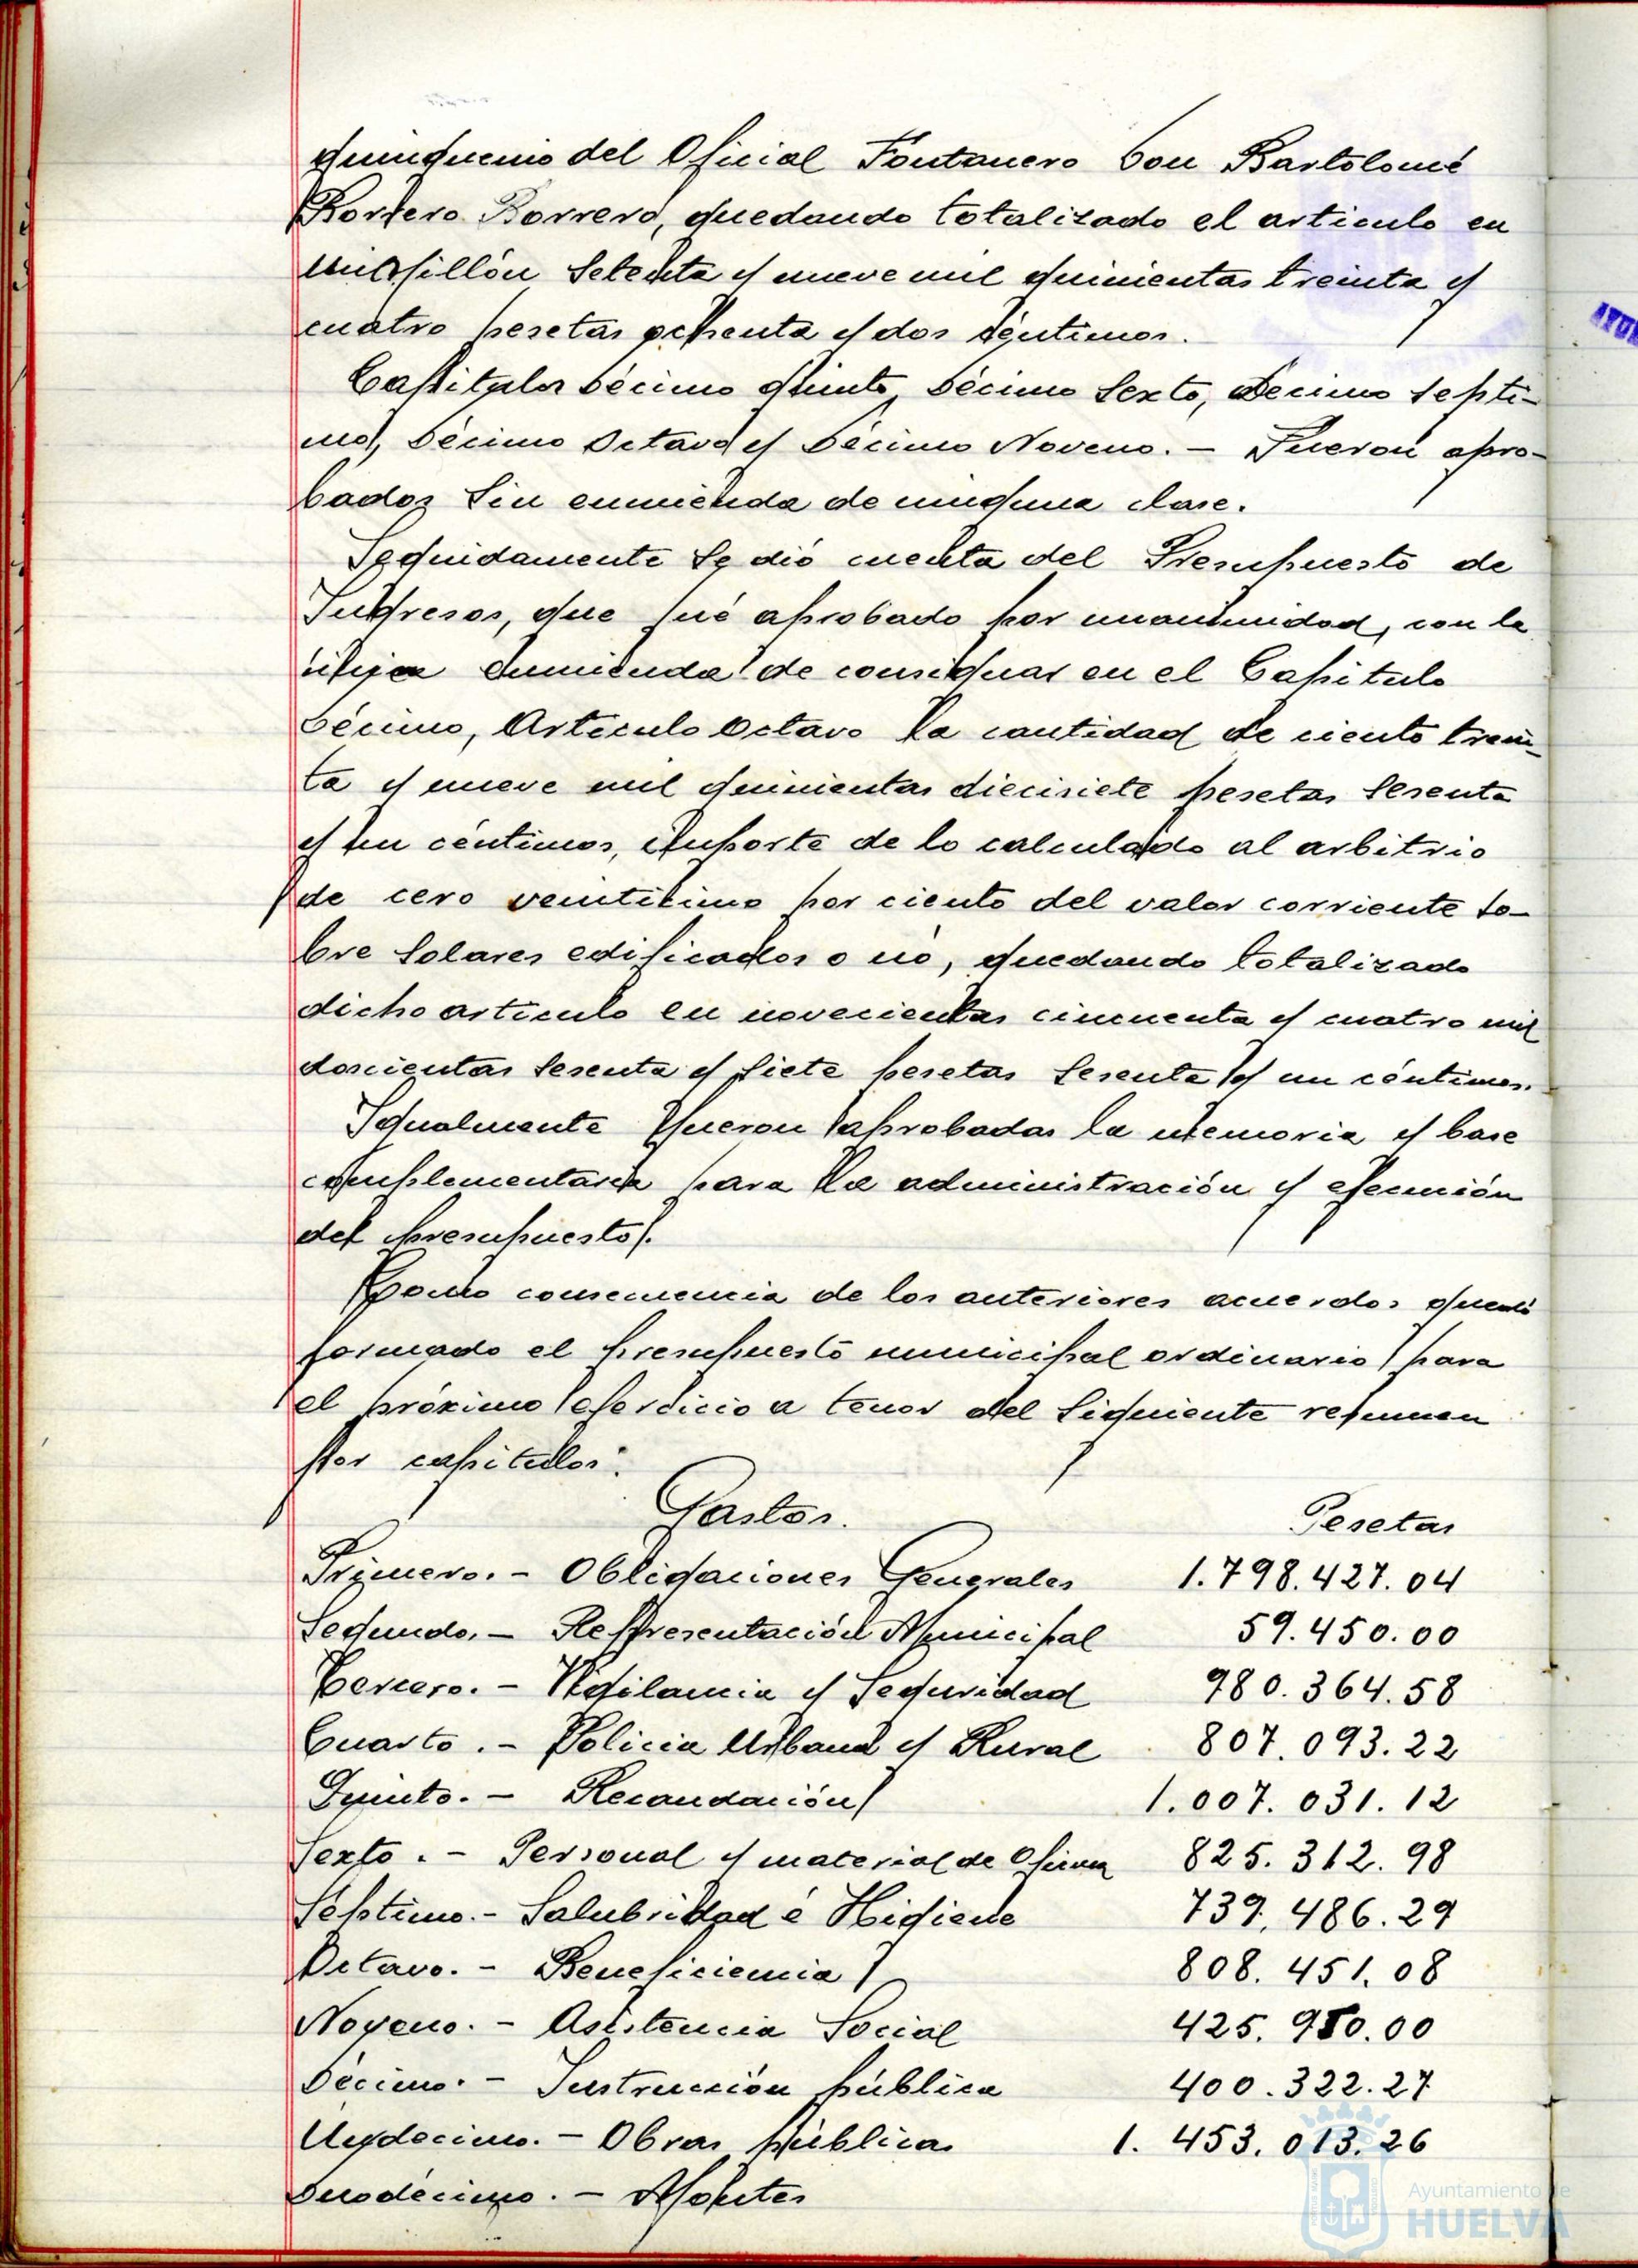 quinquenio del Oficial Fontanero Don Bartolomé
Borrero, quedando totalizado el articulo en
un Millón Setenta y nueve mil quinientas treinta y
cuatro pesetas ochenta y dos céntimos.
Capitulos Décimo quinto, Décimo Sexto, Décimo Septi-
mo, Décimo Octavo y Décimo Noveno. — Fueron apro-
bados Sin enmienda de ninguna clase.
Seguidamente Se dió cuenta del Presupuesto de
Ingresos, que fué aprobado por unanimidad, con la
única enmienda de consignar en el Capitulo
Décimo, Articulo Octavo la cantidad de ciento trein-
ta y nueve mil quinientas diecisiete pesetas Sesenta
y un céntimos, importe de lo calculado al arbitrio
de cero por ciento del valor corriente so-
bre Solares edificados o nó, quedando totalizado
dicho articulo en novecientas cincuenta y cuatro mil
doscientas Sesenta y Siete pesetas Sesenta y un céntimos.
Igualmente fueron aprobadas la memoria y base
complementaria para la administración y ejecución
del presupuesto.
Como consecuencia de los anteriores acuerdos quedó
formado el presupuesto municipal ordinario para
el próximo ejercicio a tenor del Siguiente resumen
por capitulos:
Gastos. Pesetas
Primero. - Obligaciones Generales 1.798.427.04
Segundo. — Representación Municipal 59.450.00
Tercero. - Vigilancia y Seguridad 980.364.58
Cuarto. - Policia Urbana y Rural 807.093.22
Quinto. — Recaudación 1.007.031.12
Sexto. - Personal y material de Oficina 825.312.98
Séptimo. - Salubridad é Higiene 739.486.29
Octavo. - Beneficiencia 808.451.08
Noveno. - Asistencia Social 425.980.00
Décimo. - Instrucción pública 400.322.27
Undecimo. — Obras públicas 1.453.013.26
Duodécimo. — Montes
Ayuntamiento de
HUELVA